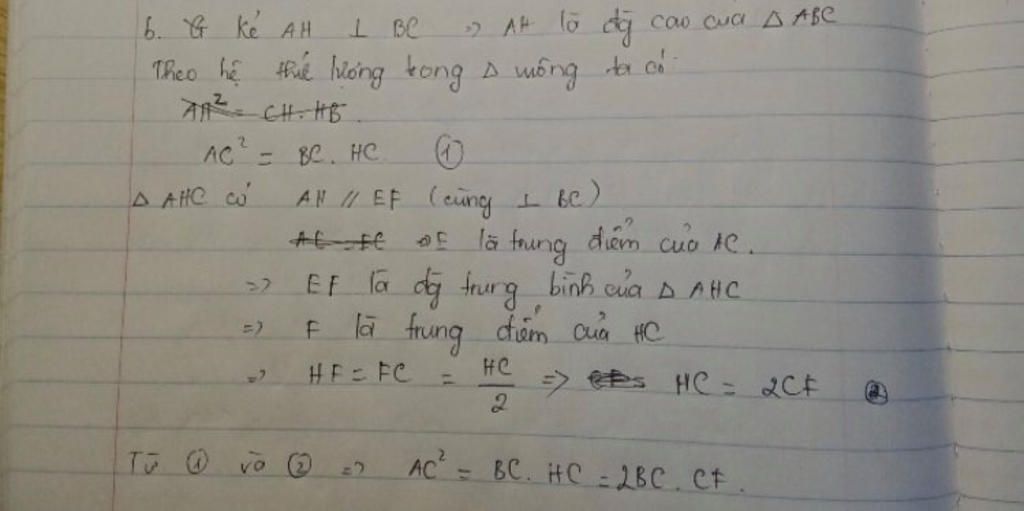 b. Kẻ AH ⊥ BC => AH là đg cao của △ ABC
Theo hệ thức lượng trong △ vuông ta có:
AH² = CH. HB
AC² = BC. HC ①
△ AHC có AH // EF (cùng ⊥ BC)
AE = EC E là trung điểm của AC.
=> EF là đg trung bình của △ AHC
=> F là trung điểm của HC
=> HF = FC = HC/2 => HC = 2CF ②
Từ ① và ② => AC² = BC. HC = 2BC. CF.